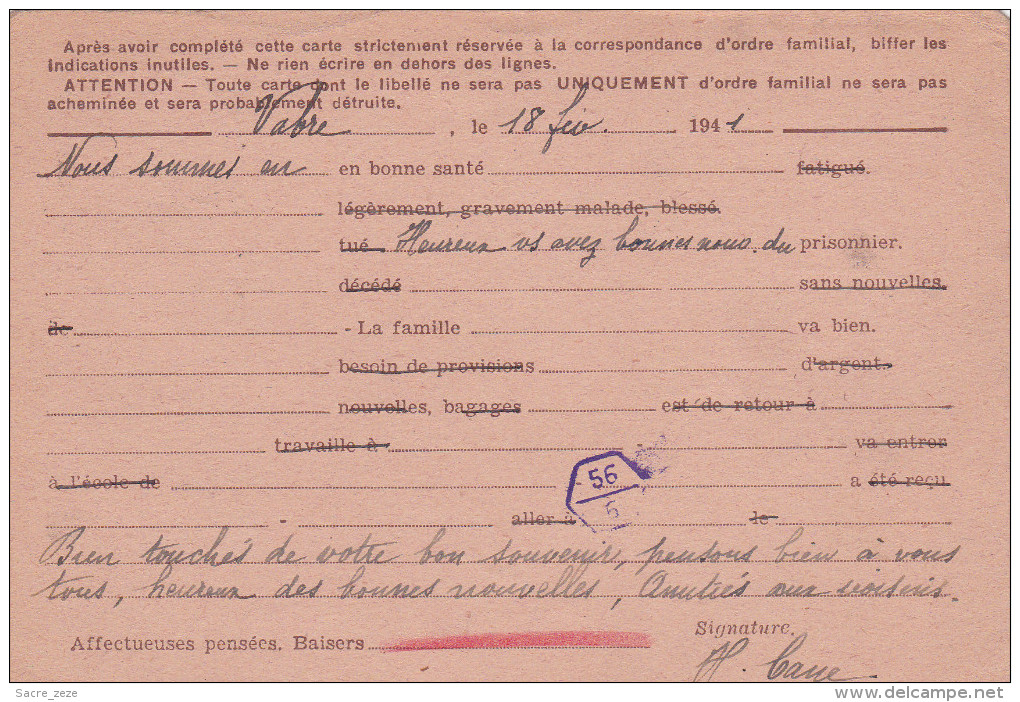 Après avoir complété cette carte strictement réservée à la correspondance d'ordre familial, biffer les
indications inutiles. — Ne rien écrire en dehors des lignes.
ATTENTION — Toute carte dont le libellé ne sera pas UNIQUEMENT d'ordre familial ne sera pas
acheminée et sera probablement détruite.
Vabre, le 18 fév. 1941
Nous sommes en en bonne santé fatigué.
légèrement, gravement malade, blessé.
tué Heureux vs avez bonnes nouv. du prisonnier.
décédé sans nouvelles.
de - La famille va bien.
besoin de provisions d'argent.
nouvelles, bagages est de retour à
travaille à - va entrer
à l'école de - a été reçu
- aller à le
56
5
Bien touchés de votre bon souvenir, pensons bien à vous
tous, heureux des bonnes nouvelles, Amitiés aux voisins.
Affectueuses pensées. Baisers
Signature.
H.
Sacre_zeze
delcampe.net